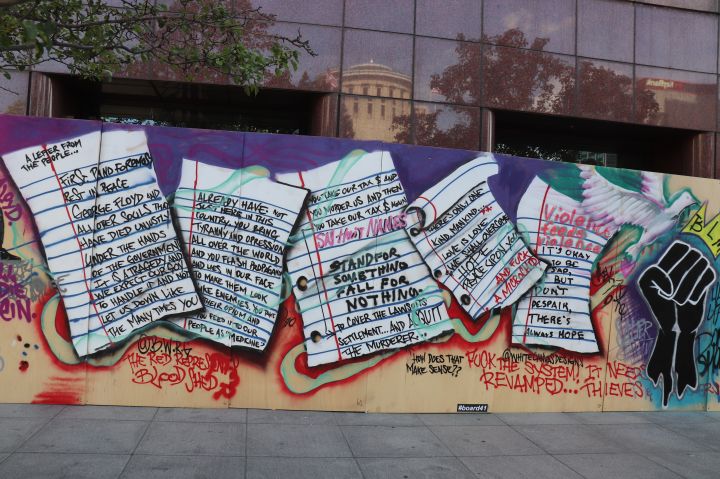 A LETTER FROM
THE PEOPLE...
FIRST AND FOREMOST
REST IN PEACE
GEORGE FLOYD &
ALL OTHER SOULS THAT
HAVE DIED UNJUSTLY
UNDER THE HANDS
OF THE GOVERNMENT
IT IS A TRAGEDY AND
WE EXPECT OUR GOV.
TO HANDLE IT AND YOU
LET US DOWN LIKE
THE MANY TIMES YOU
ALREADY HAVE: NOT
JUST HERE IN THIS
COUNTRY, YOU BRING
TYRANNY AND OPPRESSION
ALL OVER THE WORLD
AND YOU FLASH PROPAGANDA
AND LIES IN OUR FACE
TO MAKE THEM LOOK
LIKE ENEMIES. YOU PUT
THEIR OPIUM AND
YOU FEED IT TO OUR
PEOPLE AS "MEDICINE"
YOU TAKE OUR TAX $ AND
YOU MURDER US AND THEN
YOU TAKE OUR TAX $ AGAIN
SAY THEIR NAMES
STAND FOR
SOMETHING
FALL FOR
NOTHING.
TO COVER THE LAWSUITS
SETTLEMENT... AND ACQUITT
THE MURDERER...
HOW DOES THAT
MAKE SENSE??
THERE'S ONLY ONE
KIND MANKIND.
LOVE IS LOVE
LOVE &
PEACE UPON YOU
AND FUCK
Violence
feeds
violence
IT'S OKAY
TO BE
SAD, BUT
DON'T
DESPAIR,
THERE'S
ALWAYS HOPE
THE RED REPRESENTS
BLOOD SHED
@WHITECANVASDESIGN
FUCK THE SYSTEM! IT NEEDS
REVAMPED... THIEVES
#board41